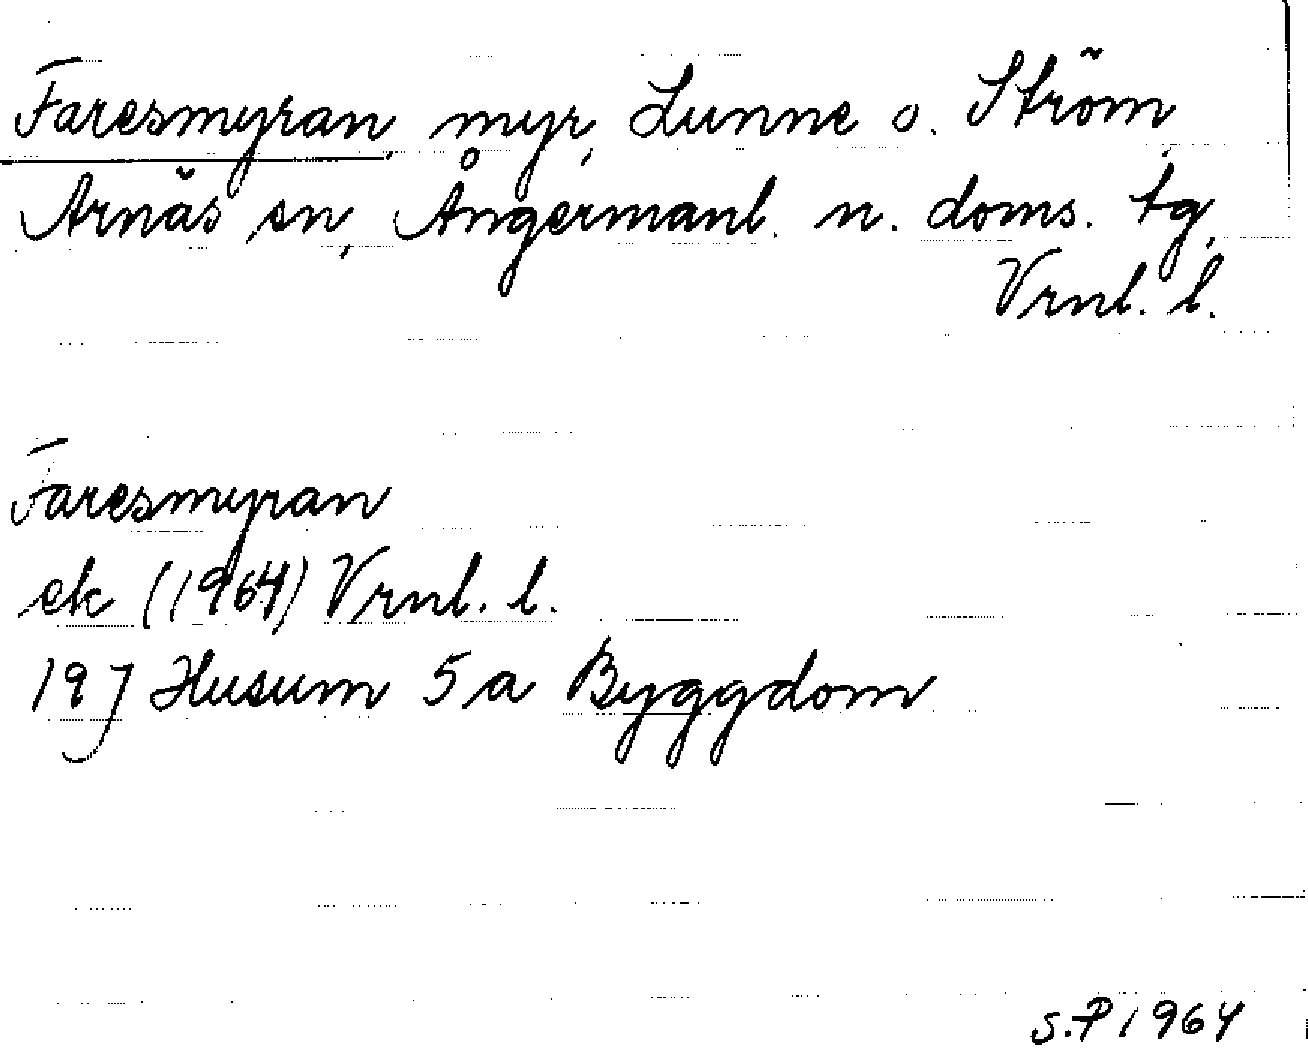 Faresmyran, myr, Lunne o. Ström,
Arnäs sn, Ångermanl. n. doms. tg,
Vrnl. l.
Faresmyran
ek (1964) Vrnl. l.
19J Husum 5a Byggdom
S.P 1964